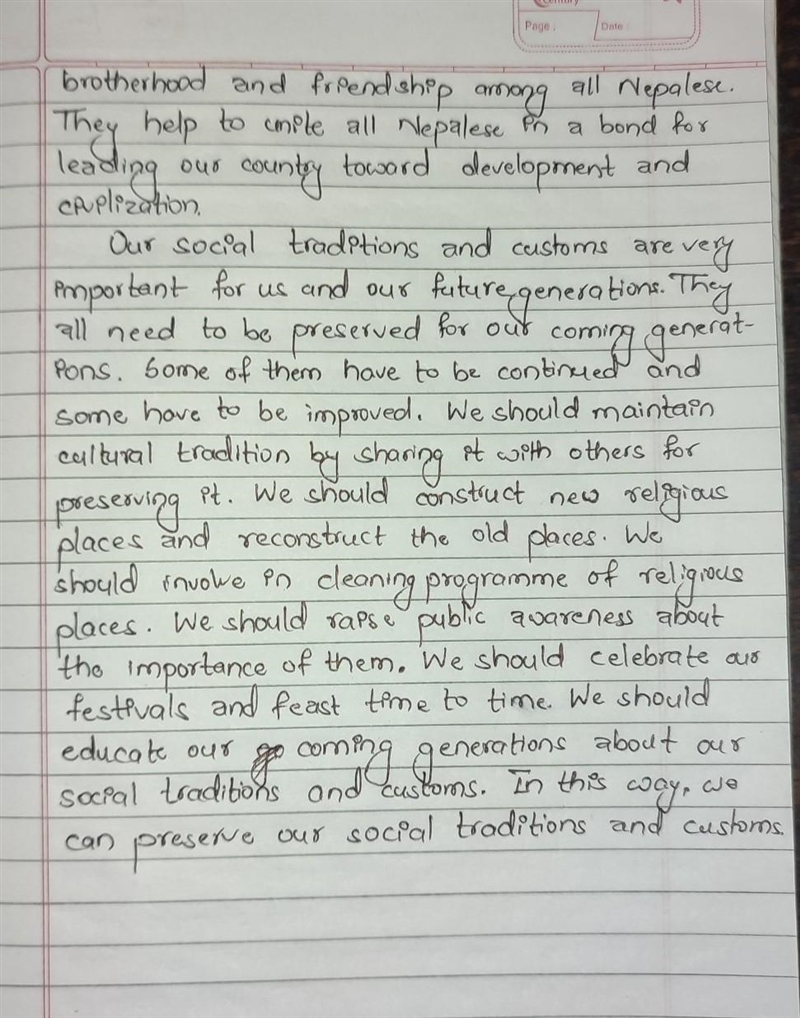 Century
Page :
Date :
brotherhood and friendship among all Nepalese.
They help to unite all Nepalese in a bond for
leading our country toward development and
civilization.
Our social traditions and customs are very
important for us and our future generations. They
all need to be preserved for our coming generat-
ions. Some of them have to be continued and
some have to be improved. We should maintain
cultural tradition by sharing it with others for
preserving it. We should construct new religious
places and reconstruct the old places. We
should involve in cleaning programme of religious
places. We should raise public awareness about
the importance of them. We should celebrate our
festivals and feast time to time. We should
educate our coming generations about our
social traditions and customs. In this way, we
can preserve our social traditions and customs.